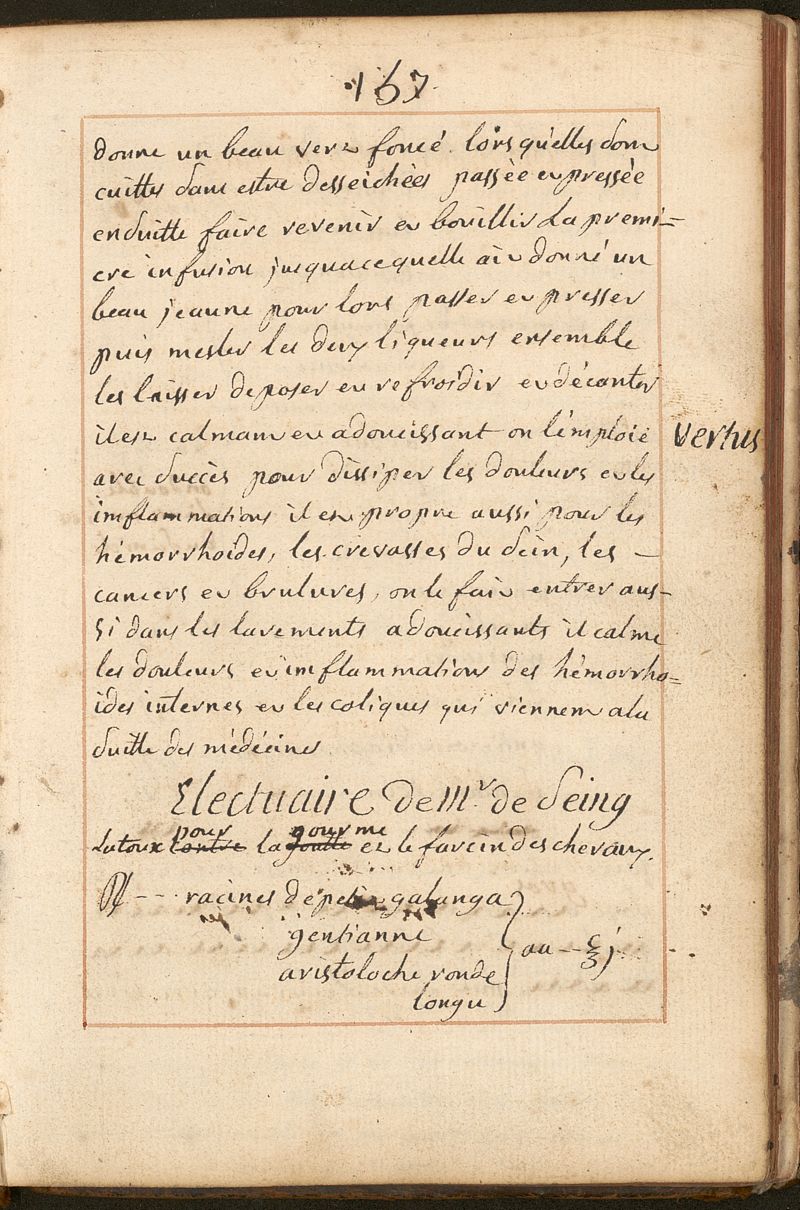 167
donne un beau vert foncé lorsquelles sont
cuittes sans estre desseichées passée et pressée
ensuitte faire revenir et bouillir la premi=
ere infusion jusquacequelle ait donné un
beau jeaune pour lors passer et presser
puis mesler les deux liqueurs ensemble
les laisser deposer et refroidir et décanter
il est calmant et adoucissant on l'emploie
vertus
avec succès pour dissiper les douleurs et les
imflammations il est propre aussi pour les
hémorrhoides, les crevasses du sein, les —
cancers et brulures, on le fait entrer aus-
si dans les lavements adoucissants il calme
les douleurs et imflammations des hémorrho=
ides internes et les coliques qui viennent a la
suitte des médécines
Electuaire de Mr de Seing
pour gourme
la toux contre la goutte et le farcin des chevaux.
℞ --- racines de petit galanga
gentianne
aristoloche ronde
aa — ℥ j
longue